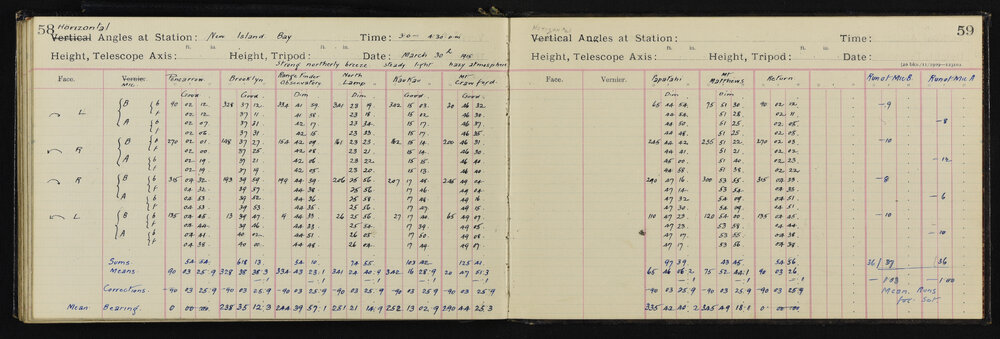 58 Horizontal
Vertical Angles at Station: New Island Bay Time: 3.0 — 4.30 p.m
ft. in. ft. in.
Height, Telescope Axis: Height, Tripod: Date: March 30th
Strong northerly breeze steady light hazy atmosphere
Face. Vernier. Mic Tencarrow Brooklyn Range finder Observatory North Lamp Mt Crawford
Good Good Dim Dim Good Good
L B b 90 02 12 328 37 12 334 41 59 341 23 19 302 15 03 20 46 32
f 02 12 37 11 41 58 23 18 15 02 46 30
A b 02 07 37 31 42 17 23 34 15 17 46 37
f 02 06 37 31 42 15 23 33 15 17 46 35
R B b 270 02 01 148 37 27 154 42 09 161 23 23 162 15 14 200 46 31
f 02 00 37 25 42 08 23 21 15 14 46 30
A b 02 19 37 21 42 06 23 22 15 15 46 40
f 02 19 37 19 42 05 23 20 15 13 46 40
R B b 315 04 32 193 39 59 199 44 39 206 25 56 207 17 48 245 49 04
f 04 32 39 57 44 38 25 56 17 46 49 04
A b 04 53 39 52 44 36 25 58 17 48 49 16
f 04 53 39 53 44 35 25 56 17 47 49 15
L B b 135 04 45 13 39 47 4 44 33 26 25 56 27 17 40 65 49 07
f 04 44 39 46 44 33 25 54 17 39 49 05
A b 04 41 40 02 44 51 26 05 17 50 49 08
f 04 38 40 00 44 48 26 04 17 49 49 07
Sums 54 54 618 13 54 10 74 55 103 42 125 41
Means 90 03 25.9 328 38 38.3 334 43 23.1 341 24 40.9 342 16 28.9 20 47 51.3
Corrections — 90 03 25.9 -90 03 25.9 -90 03 25.9 -90 03 25.9 -90 03 25.9 -90 03 25.9
Mean Bearing. 0 00 00 238 35 12.3 244 39 57.1 251 21 14.9 252 13 02.9 290 44 25.3
59
Vertical Angles at Station: Time:
ft. in. ft. in.
Height, Telescope Axis: Height, Tripod: Date:
Face. Vernier. Papatahi Mt Matthews Return Run of Mic B. Run of Mic A
Dim Dim Good
65 44 54 75 51 30 90 02 12 — 9
44 54 51 28 02 11
44 50 51 25 02 05 — 8
44 48 51 25 02 05
245 44 42 235 51 22 270 02 03 — 10
44 41 51 21 02 03
45 00 51 40 02 23 — 12
44 58 51 38 02 22
290 47 16 300 53 55 315 04 33 — 8
47 14 53 54 04 33
47 32 54 09 04 51 — 6
47 30 54 09 04 51
110 47 23 120 54 00 135 04 45 — 10
47 23 53 58 04 44
47 17 53 55 04 38 — 10
47 17 53 56 04 38
97 39 43 45 54 56 36 / 37 / 36
65 46 06.2 75 52 44.1 90 03 26 — 1.03 — 1.00
-90 03 25.9 -90 03 25.9 -90 03 25.9 Mean Runs
for Set
335 42 40.2 345 49 18.1 0 00 00